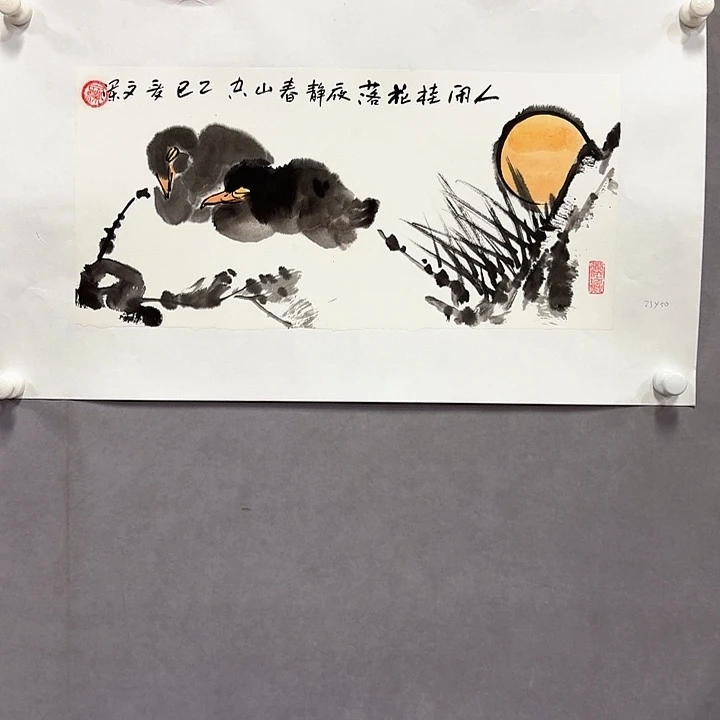 人闲桂花落夜静春山空 乙巳夏文
23×50